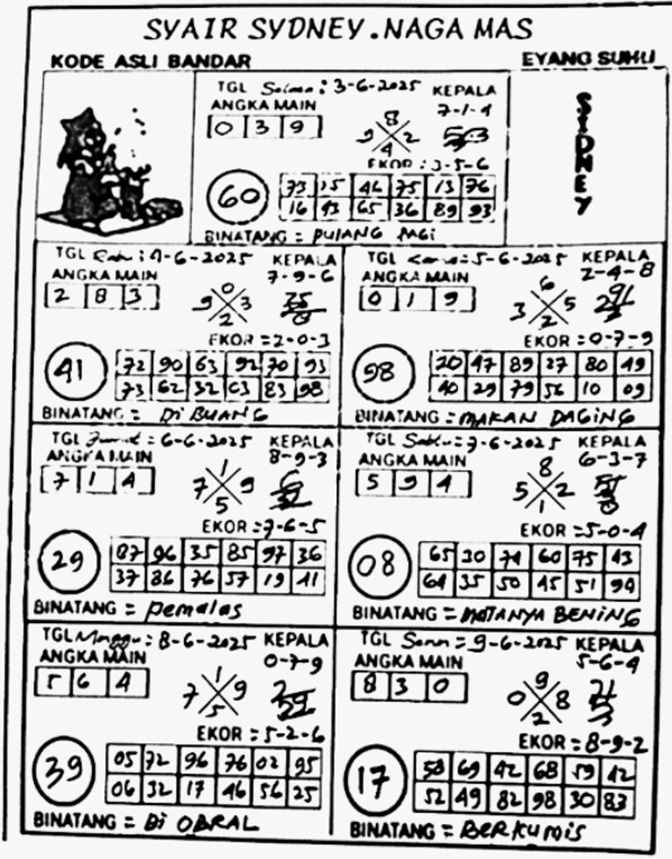 SYAIR SYDNEY.NAGA MAS
KODE ASLI BANDAR
EYANG SUHU
TGL Selasa : 3-6-2025 KEPALA
ANGKA MAIN 7-1-4
0 3 9
8
9 2
4
EKOR : 3-5-6
60
73 15 46 75 13 76
16 43 65 36 89 93
BINATANG = PULANG PAGI
SIDNEY
TGL Rabu : 4-6-2025 KEPALA
ANGKA MAIN 7-9-6
2 8 3
0
9 3
2
EKOR = 2-0-3
41
72 90 63 92 70 93
73 62 32 03 83 98
BINATANG = Di BUANG
TGL Kamis = 5-6-2025 KEPALA
ANGKA MAIN 2-4-8
0 1 9
6
3 5
2
EKOR = 0-7-9
98
20 47 89 27 80 49
40 29 79 56 10 09
BINATANG = MAKAN DAGING
TGL Jumat = 6-6-2025 KEPALA
ANGKA MAIN 8-9-3
7 1 4
1
7 9
5
EKOR = 7-6-5
29
87 96 35 85 97 36
37 86 76 57 19 41
BINATANG = pemalas
TGL Sabtu = 7-6-2025 KEPALA
ANGKA MAIN 6-3-7
5 9 4
8
5 2
1
EKOR = 5-0-4
08
65 30 74 60 75 43
64 35 50 45 51 94
BINATANG = MATANYA BENING
TGL Minggu : 8-6-2025 KEPALA
ANGKA MAIN 0-7-9
5 6 4
1
7 9
5
EKOR = 5-2-6
39
05 72 96 76 02 95
06 32 17 46 56 25
BINATANG = Di OBRAL
TGL Senin = 9-6-2025 KEPALA
ANGKA MAIN 5-6-4
8 3 0
9
0 8
2
EKOR = 8-9-2
17
58 69 42 68 59 42
52 49 82 98 30 83
BINATANG = BERKUMIS